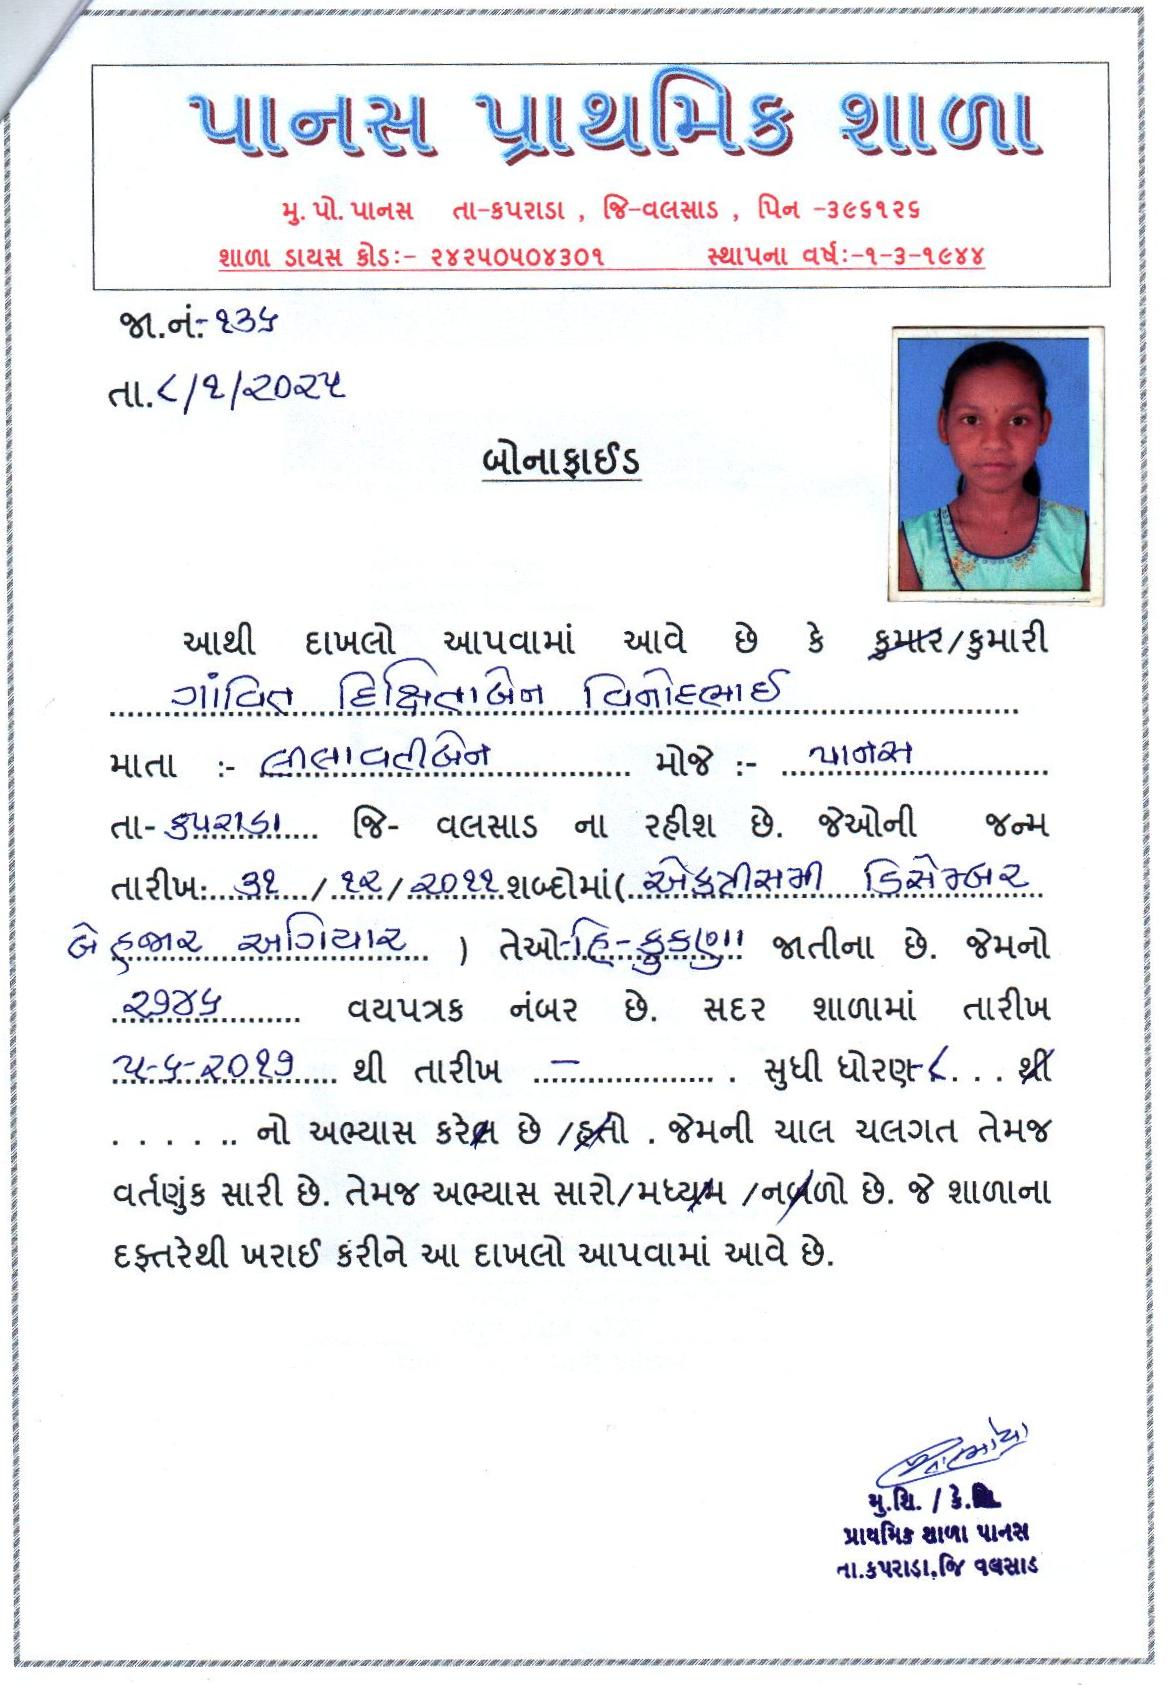 પાનસ પ્રાથમિક શાળા
મુ. પો. પાનસ તા-કપરાડા , જિ-વલસાડ , પિન -૩૯૬૧૨૬
શાળા ડાયસ કોડઃ- ૨૪૨૫૦૫૦૪૩૦૧ સ્થાપના વર્ષઃ-૧-૩-૧૯૪૪
જા.નંઃ- ૧૩૬
તા. ૮/૧/૨૦૨૫
બોનાફાઈડ
આથી દાખલો આપવામાં આવે છે કે કુમાર/કુમારી
ગાંવિત દિક્ષિતાબેન વિનોદભાઈ
માતા :- લીલાવતીબેન મોજે :- પાનસ
તા- કપરાડા જિ- વલસાડ ના રહીશ છે. જેઓની જન્મ
તારીખઃ 31 / ૧૨ / ૨૦૧૧ શબ્દોમાં( એકત્રીસમી ડિસેમ્બર
બે હજાર અગિયાર ) તેઓ-હિ-કુકણા જાતીના છે. જેમનો
૨૭૪૬ વયપત્રક નંબર છે. સદર શાળામાં તારીખ
૫-૬-૨૦૧૭ થી તારીખ — . સુધી ધોરણ-૮. . . થી
. . . . . .. નો અભ્યાસ કરેલ છે /હતો . જેમની ચાલ ચલગત તેમજ
વર્તણુંક સારી છે. તેમજ અભ્યાસ સારો/મધ્યમ /નબળો છે. જે શાળાના
દફતરેથી ખરાઈ કરીને આ દાખલો આપવામાં આવે છે.
મુ.શિ. / કે.
પ્રાથમિક શાળા પાનસ
તા.કપરાડા,જિ વલસાડ